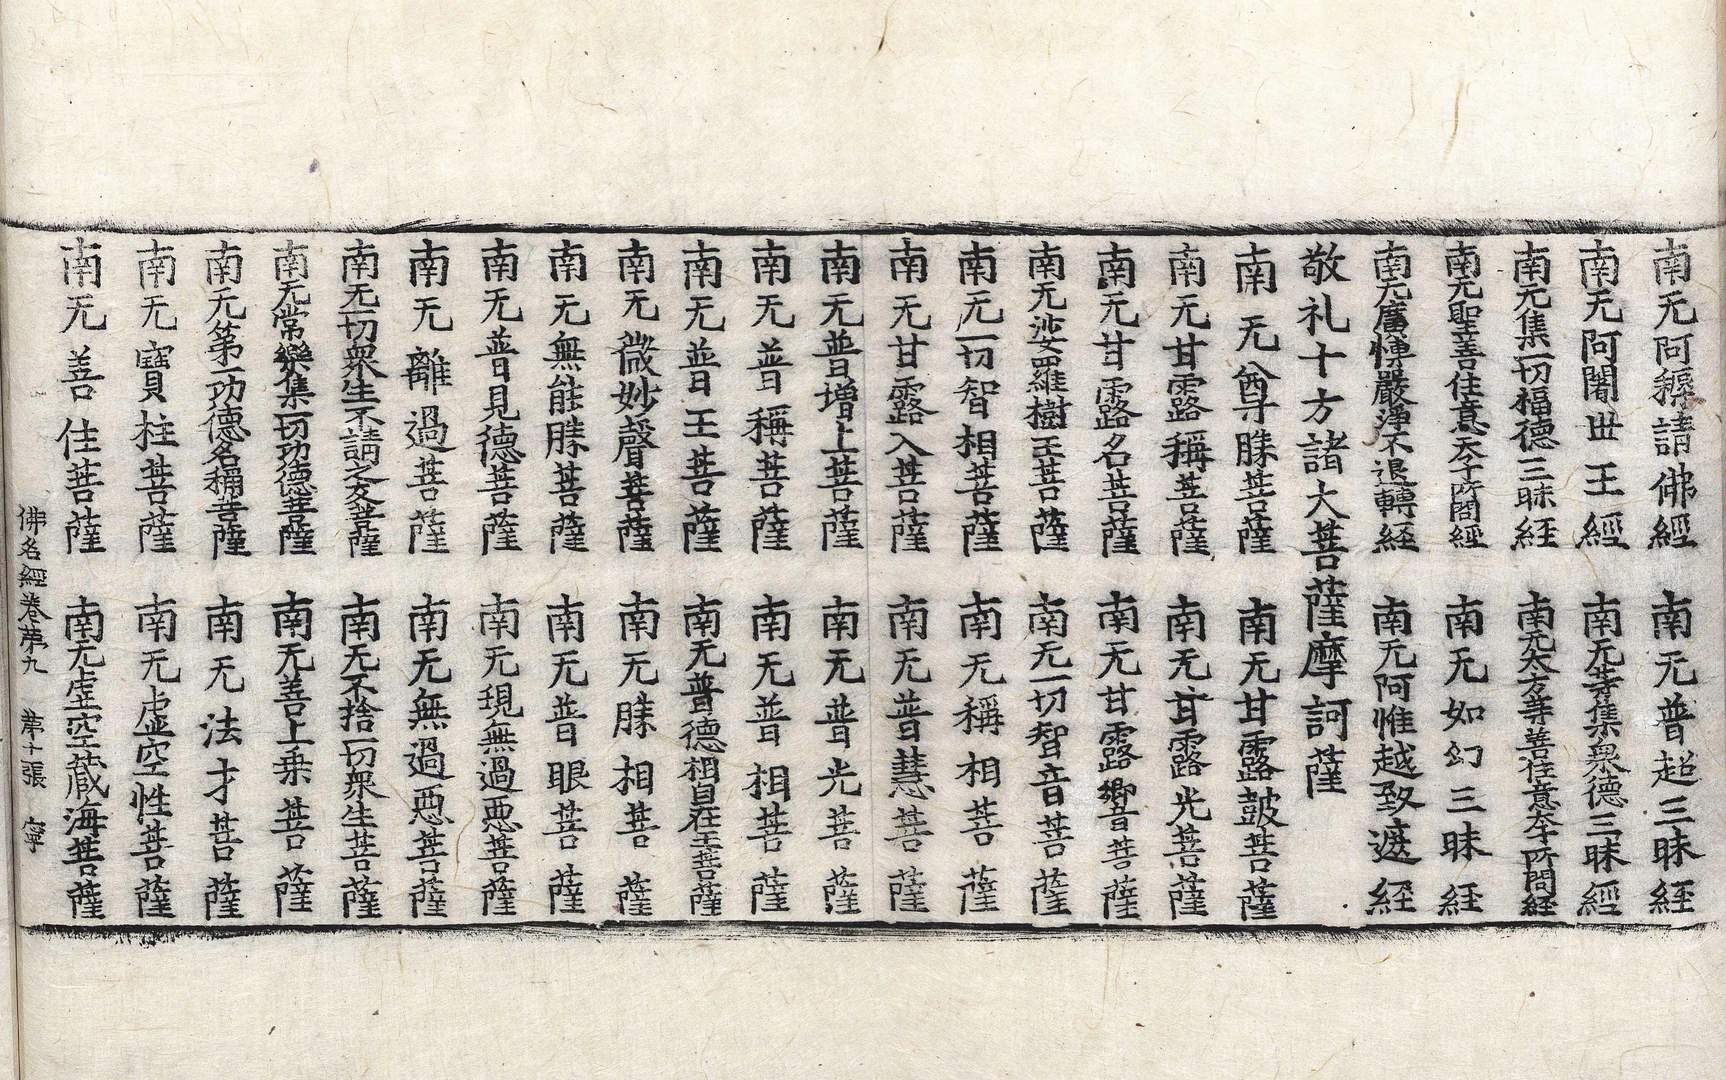 南无阿耨請佛經　南无普超三昧經
南无阿闍世王經　南无等集衆德三昧經
南无集一切福德三昧經　南无太方等善住意天子所問經
南无聖善住意天子所問經　南无如幻三昧經
南无廣愽嚴淨不退轉經　南无阿惟越致遮經
敬礼十方諸大菩薩摩訶薩
南无尊勝菩薩　南无甘露鼓菩薩
南无甘露稱菩薩　南无甘露光菩薩
南无甘露名菩薩　南无甘露響菩薩
南无娑羅樹王菩薩　南无一切智音菩薩
南无一切智相菩薩　南无稱相菩薩
南无甘露入菩薩　南无普慧菩薩
南无普增上菩薩　南无普光菩薩
南无普稱菩薩　南无普相菩薩
南无普王菩薩　南无普德相自在王菩薩
南无微妙聲菩薩　南无勝相菩薩
南无無能勝菩薩　南无普眼菩薩
南无普見德菩薩　南无現無過惡菩薩
南无離過菩薩　南无無過惡菩薩
南无一切衆生不請之友菩薩　南无不捨一切衆生菩薩
南无常樂集一切功德菩薩　南无善上乗菩薩
南无第一功德名稱菩薩　南无法才菩薩
南无寶柱菩薩　南无虛空性菩薩
南无善住菩薩　南无虛空藏海菩薩
佛名經卷第九　第十二張　寧